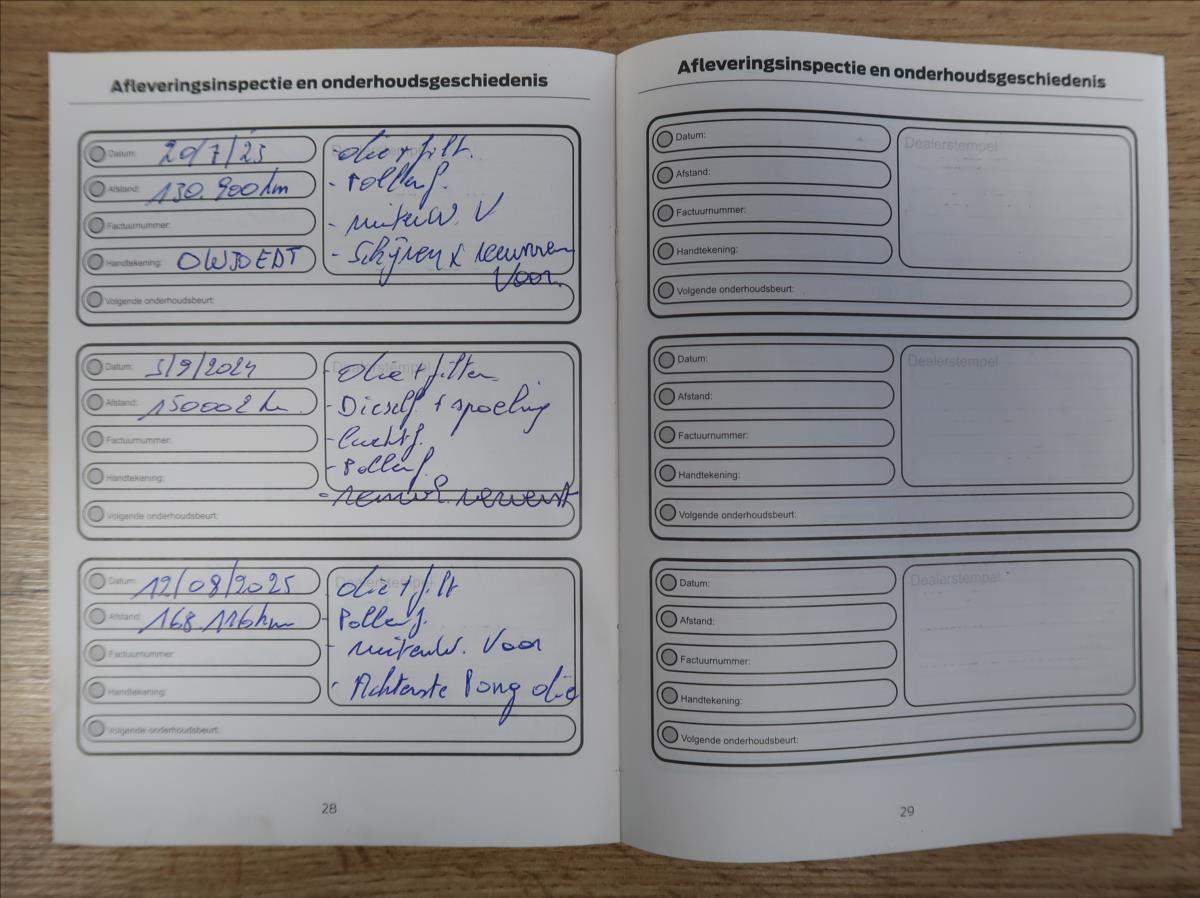 Afleveringsinspectie en onderhoudsgeschiedenis
Datum: 20/7/23
Afstand: 130.900 km
Factuurnummer:
Handtekening:
Volgende onderhoudsbeurt:
Dealerstempel
- olie + filt.
- Pollenf.
- ruitenw. V
- Schijven & remmen
Voor.
Datum: 5/9/2024
Afstand: 150002 km
Factuurnummer:
Handtekening:
Volgende onderhoudsbeurt:
Dealerstempel
- Olie + filter
- Dieself + spoeling
- luchtf.
- Pollenf.
- ververst
Datum: 12/08/2025
Afstand: 168.116 km
Factuurnummer:
Handtekening:
Volgende onderhoudsbeurt:
Dealerstempel
- Olie + filt
- Pollenf.
- ruitenw. Voor
- Achterste olie
28
Afleveringsinspectie en onderhoudsgeschiedenis
Datum:
Afstand:
Factuurnummer:
Handtekening:
Volgende onderhoudsbeurt:
Dealerstempel
Datum:
Afstand:
Factuurnummer:
Handtekening:
Volgende onderhoudsbeurt:
Dealerstempel
Datum:
Afstand:
Factuurnummer:
Handtekening:
Volgende onderhoudsbeurt:
Dealerstempel
29